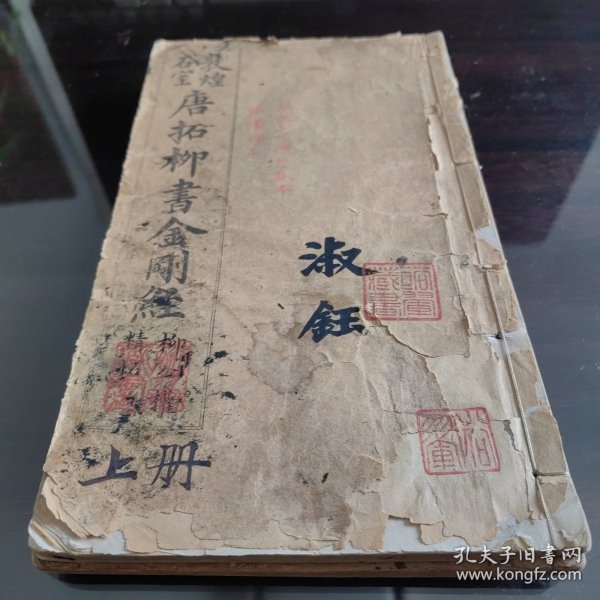 敦煌
石室
唐拓柳書金剛經
柳公權
上册
淑鈺
藏書
孔夫子旧书网
www.kongfz.com